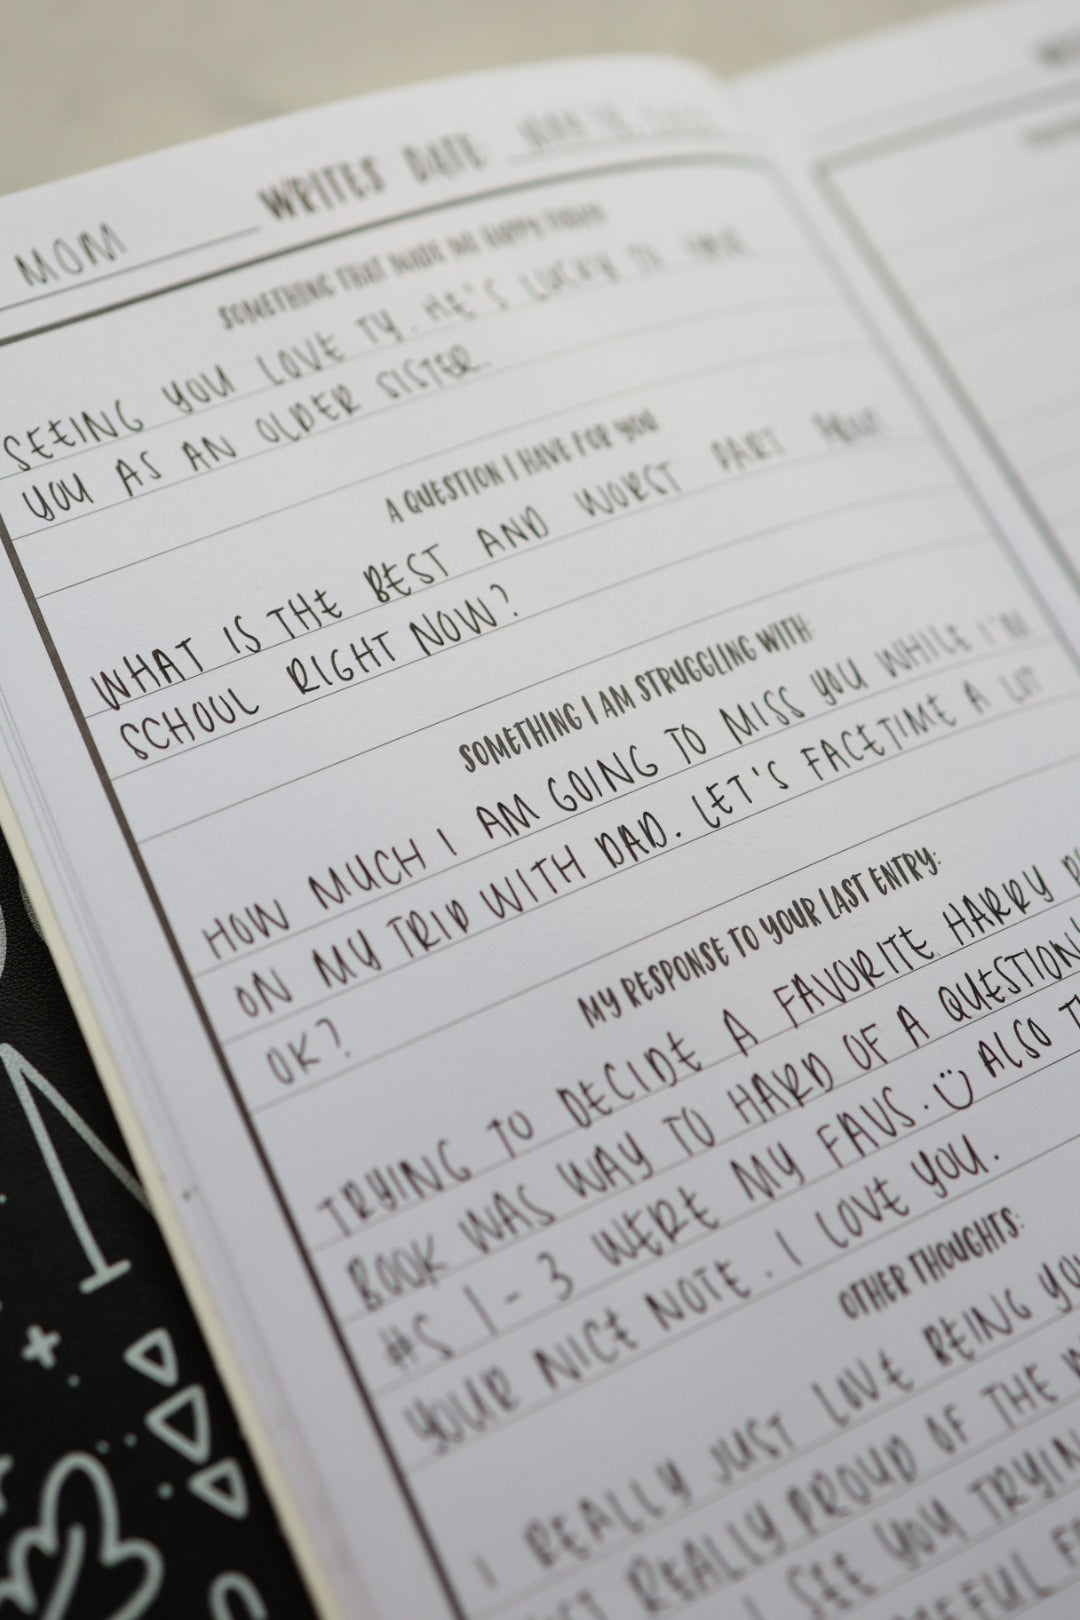 MOM WRITES DATE
SOMETHING THAT MADE ME HAPPY TODAY
SEEING YOU LOVE TY. HE'S LUCKY TO HAVE
YOU AS AN OLDER SISTER.
A QUESTION I HAVE FOR YOU
WHAT IS THE BEST AND WORST PART ABOUT
SCHOOL RIGHT NOW?
SOMETHING I AM STRUGGLING WITH:
HOW MUCH I AM GOING TO MISS YOU WHILE I'M
ON MY TRIP WITH DAD. LET'S FACETIME A LOT
OK?
MY RESPONSE TO YOUR LAST ENTRY:
TRYING TO DECIDE A FAVORITE HARRY
BOOK WAS WAY TO HARD OF A QUESTION
#S 1-3 WERE MY FAVS. ALSO
YOUR NICE NOTE. I LOVE YOU.
OTHER THOUGHTS:
I REALLY JUST LOVE BEING
REALLY PROUD OF THE
I SEE YOU